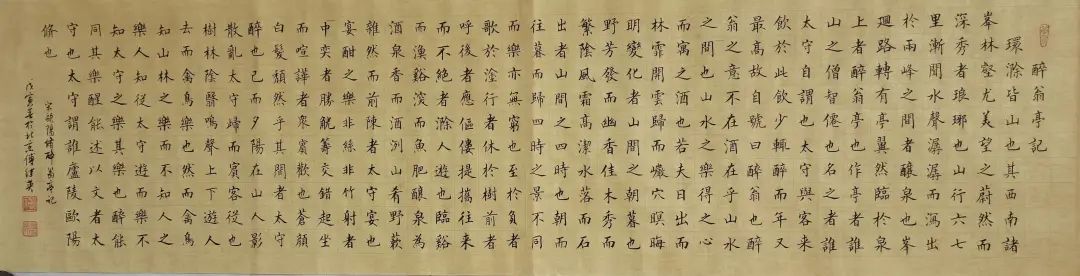 醉翁亭記
環滁皆山也其西南諸
峯林壑尤美望之蔚然而
深秀者琅琊也山行六七
里漸聞水聲潺潺而瀉出
於兩峰之間者釀泉也峯
迴路轉有亭翼然臨於泉
上者醉翁亭也作亭者誰
山之僧智僊也名之者誰
太守自謂也太守與客來
飲於此飲少輒醉而年又
最高故自號曰醉翁也醉
翁之意不在酒在乎山水
之間也山水之樂得之心
而寓之酒也若夫日出而
林霏開雲歸而巖穴暝晦
明變化者山間之朝暮也
野芳發而幽香佳木秀而
繁陰風霜高潔水落而石
出者山間之四時也朝而
往暮而歸四時之景不同
而樂亦無窮也至於負者
歌於塗行者休於樹前者
呼後者應傴僂提攜往來
而不絕者滁人遊也臨谿
而漁谿深而魚肥釀泉為
酒泉香而酒洌山肴野蔌
雜然而前陳者太守宴也
宴酣之樂非絲非竹射者
中奕者勝觥籌交錯起坐
而喧譁者眾賓歡也蒼顏
白髮頹然乎其間者太守
醉也已而夕陽在山人影
散亂太守歸而賓客從也
樹林陰翳鳴聲上下遊人
去而禽鳥樂也然而禽鳥
知山林之樂而不知人之
樂人知從太守遊而樂不
知太守之樂其樂也醉能
同其樂醒能述以文者太
守也太守謂誰廬陵歐陽
脩也
宋歐陽脩醉翁亭記
戊寅於北京